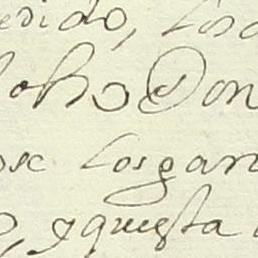 edido, Los
dho Don
se Losgan
, yquesta